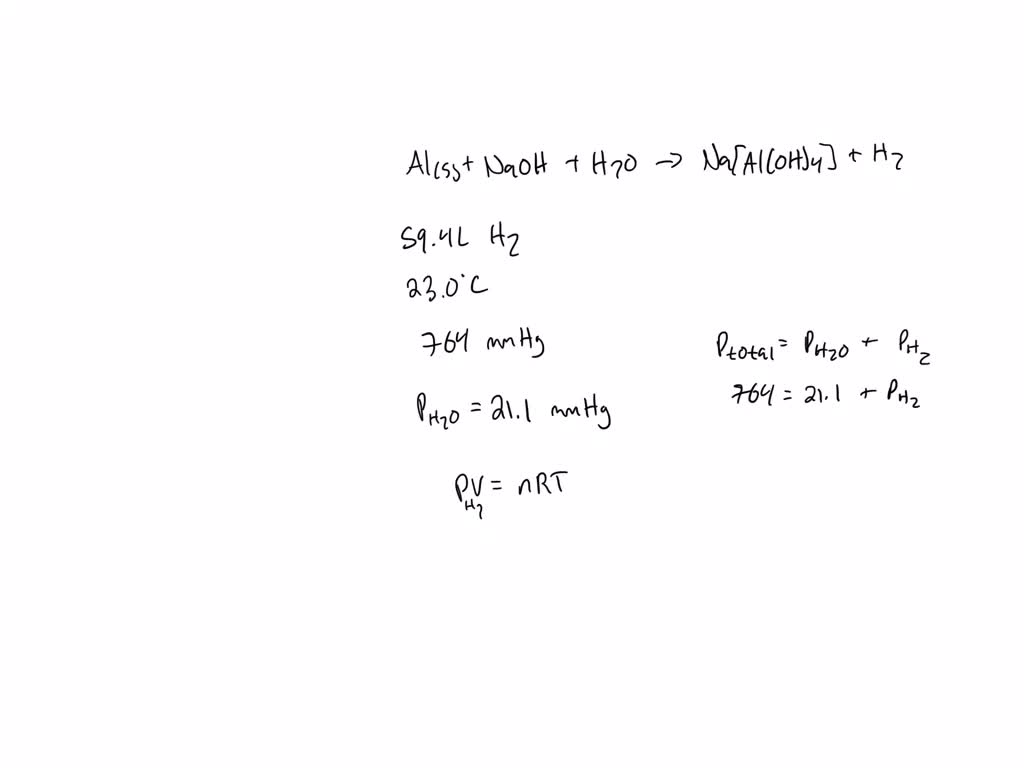 Al(s) + NaOH + H2O → Na[Al(OH)4] + H2
59.4L H2
23.0°C
764 mmHg
Ptotal = PH2O + PH2
764 = 21.1 + PH2
PH2O = 21.1 mmHg
PV = nRT
H2